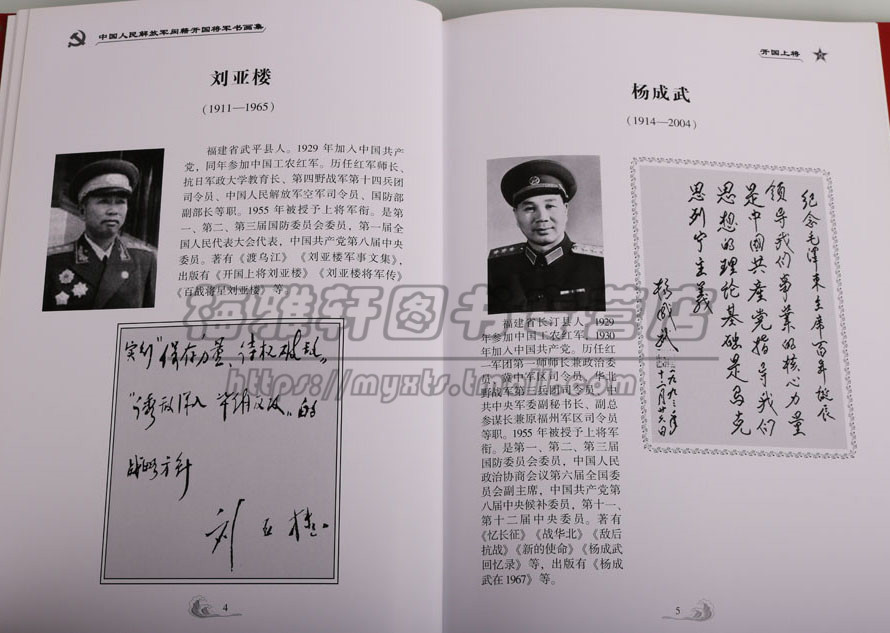 中国人民解放军闽籍开国将军书画集
刘亚楼
(1911—1965)
福建省武平县人。1929 年加入中国共产
党，同年参加中国工农红军。历任红军师长、
抗日军政大学教育长、第四野战军第十四兵团
司令员、中国人民解放军空军司令员、国防部
副部长等职。1955 年被授予上将军衔。是第
一、第二、第三届国防委员会委员，第一届全
国人民代表大会代表，中国共产党第八届中央
委员。著有《渡乌江》《刘亚楼军事文集》，
出版有《开国上将刘亚楼》《刘亚楼将军传》
《百战将星刘亚楼》等。
实行"保存力量、待机破敌"
"诱敌深入 的
战略方针
刘亚楼
4
开国上将
杨成武
(1914—2004)
纪念毛泽东主席百年诞辰
领导我们事业的核心力量
是中國共產党指导我们
思想的理论基础是马克
思列宁主義
杨成武 一九九三年
十二月廿六日
福建省长汀县人。1929
年参加中国工农红军，1930
年加入中国共产党。历任红
一军团第一师师长兼政治委
员，冀中军区司令员，华北
野战军第三兵团司令员，中
共中央军委副秘书长、副总
参谋长兼原福州军区司令员
等职。1955 年被授予上将军
衔。是第一、第二、第三届
国防委员会委员，中国人民
政治协商会议第六届全国委
员会副主席，中国共产党第
八届中央候补委员，第十一、
第十二届中央委员。著有
《忆长征》《战华北》《敌后
抗战》《新的使命》《杨成武
回忆录》等，出版有《杨成
武在1967》等。
5
福雅轩图书专营店
https://myxts.tmall.com